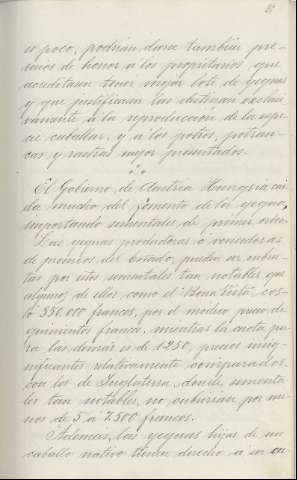 u poco, podrian darse tambien pre-
mios de honor a los propietarios que
acreditasen tener mejor lote de yeguas
y que justificaran las destinan exclusi-
vamente á la reproducción de la espe-
cie caballar, y a los potros, potran-
cas y rastras mejor presentados.
El Gobierno de Austria Hungria cui-
da mucho del fomento de las yeguas,
importando sementales de primer orden.
Las yeguas productoras o vencedoras
de premios del Estado, pueden ser cubier-
tas por estos sementales tan notables que
algunos de ellos como el "Bona Vista", cos-
tó 350.000 francos, por el modico precio de
quinientos francos, mientras la cuota pa-
ra las demás es de 1250, precios insig-
nificantes relativamente comparados
con los de Inglaterra, donde sementa-
les tan notables, no cubririan por me-
nos de 5 a 7.500 francos.
Además, las yeguas hijas de un
caballo nativo tienen derecho a ser cu-